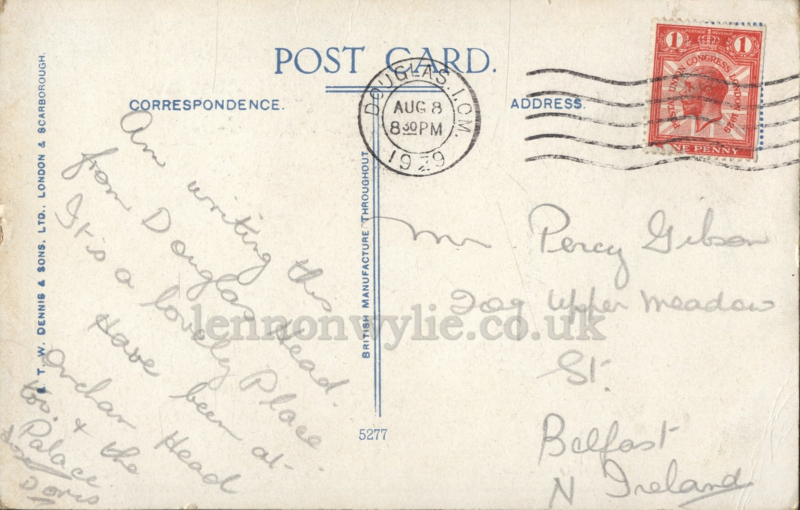 POST CARD.
CORRESPONDENCE.
ADDRESS.
DOUGLAS. I.O.M.
AUG 8
8 30 PM
1929
1 1
POSTAL UNION CONGRESS LONDON 1929
ONE PENNY
Am writing this
from Douglas Head.
It is a lovely Place
Have been at
Onchan Head
too. & the
Palace.
Doris
Mr Percy Gibson
209 Upper Meadow
St.
Belfast
N Ireland
T. W. DENNIS & SONS, LTD., LONDON & SCARBOROUGH.
BRITISH MANUFACTURE THROUGHOUT
5277
lennonwylie.co.uk